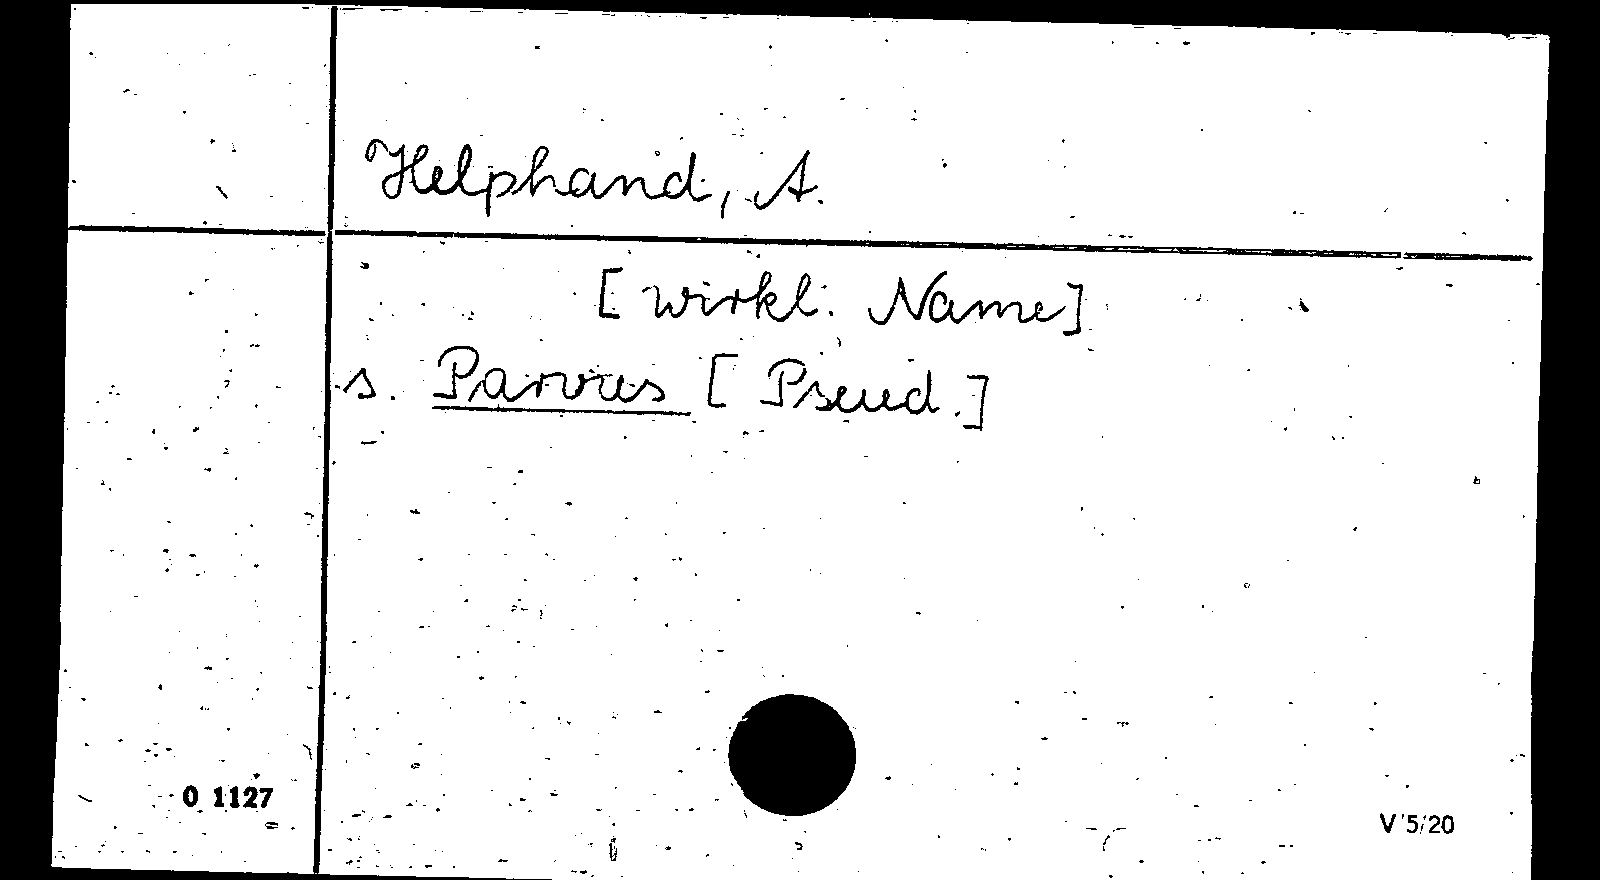 Helphand, A.
[wirkl. Name]
s. Parvus [Pseud.]
0 1127
V 5/20